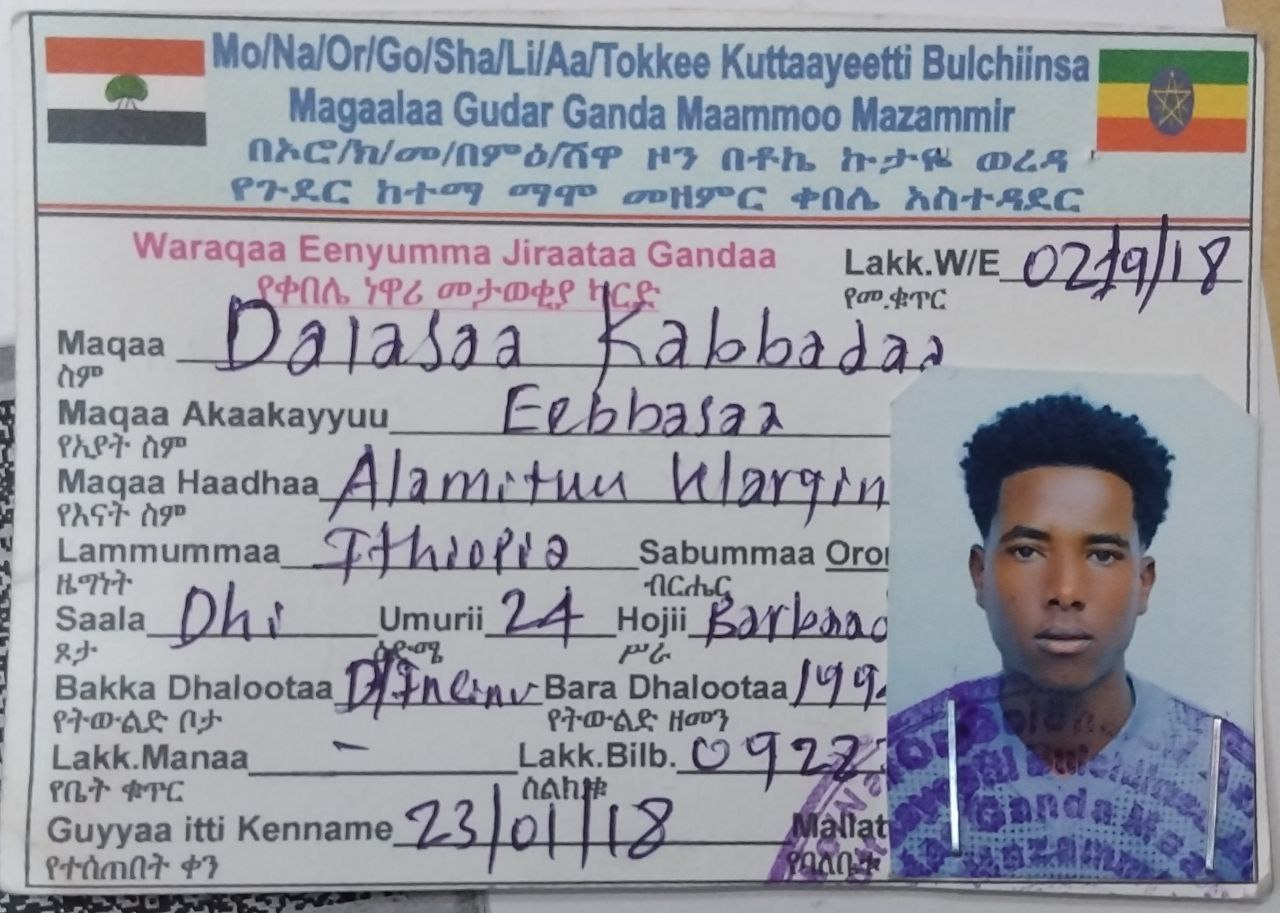 Mo/Na/Or/Go/Sha/Li/Aa/Tokkee Kuttaayeetti Bulchiinsa
Magaalaa Gudar Ganda Maammoo Mazammir
በኦሮ/ክ/መ/በምዕ/ሸዋ ዞን በቶኬ ኩታዬ ወረዳ
የጉደር ከተማ ማሞ መዘምር ቀበሌ አስተዳደር
Waraqaa Eenyumma Jiraataa Gandaa
የቀበሌ ነዋሪ መታወቂያ ካርድ
Lakk.W/E 0219/18
የመ.ቁጥር
Maqaa Dalasaa Kabbadaa
ስም
Maqaa Akaakayyuu Eebbasaa
የአያት ስም
Maqaa Haadhaa Alamituu Wargin
የእናት ስም
Lammummaa Ithiopia Sabummaa Oro
ዜግነት ብርሔር
Saala Dhi Umurii 24 Hojii Barbaa
ጾታ ዕድሜ ሥራ
Bakka Dhalootaa Bara Dhalootaa 199
የትውልድ ቦታ የትውልድ ዘመን
Lakk.Manaa - Lakk.Bilb. 0922
የቤት ቁጥር ስልክ ቁ
Guyyaa itti Kenname 23/01/18 Mallat
የተሰጠበት ቀን የባለቤቱ
Ganda Maa